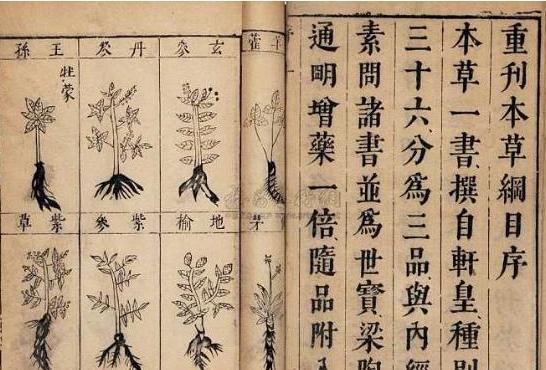 重刊本草綱目序
本草一書撰自軒皇種別
三十六分爲三品與內經
素問諸書並爲世寶梁
通眀增藥一倍隨品附
玄參
丹參
王孫
牡蒙
地榆
紫參
紫草